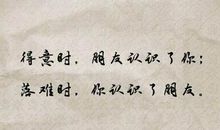 得意时，朋友认识了你；
落难时，你认识了朋友。